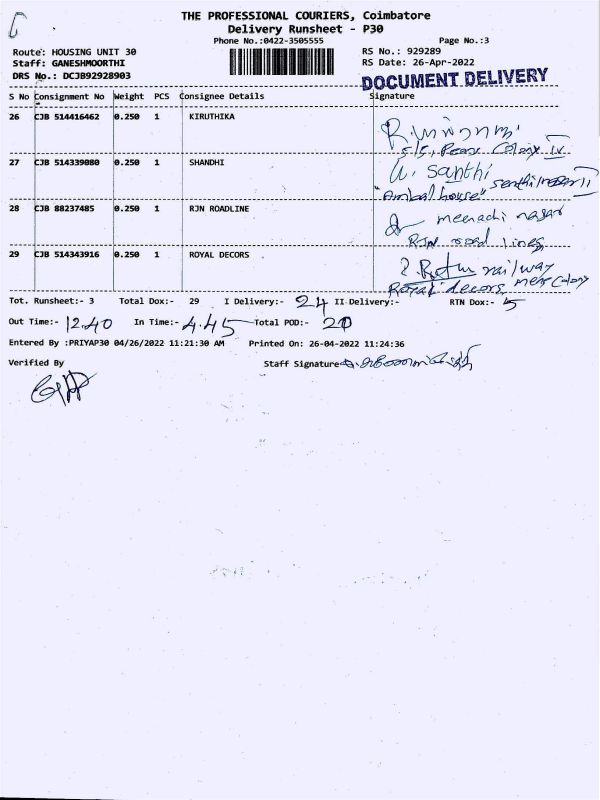 THE PROFESSIONAL COURIERS, Coimbatore
Delivery Runsheet - P30
Phone No.:0422-3505555 Page No.:3
Route: HOUSING UNIT 30 RS No.: 929289
Staff: GANESHMOORTHI RS Date: 26-Apr-2022
DRS No.: DCJB92928903
DOCUMENT DELIVERY
S No Consignment No Weight PCS Consignee Details Signature
26 CJB 514416462 0.250 1 KIRUTHIKA
5/5, Colony IV
27 CJB 514339080 0.250 1 SHANDHI
U. Santhi
"Ambal house"
28 CJB 88237485 0.250 1 RJN ROADLINE
meenachi nagar
RJN road lines
29 CJB 514343916 0.250 1 ROYAL DECORS
railway
Royal decors, Colony
Tot. Runsheet:- 3 Total Dox:- 29 I Delivery:- 24 II Delivery:- RTN Dox:- 5
Out Time:- 12.40 In Time:- 4.45 Total POD:- 20
Entered By :PRIYAP30 04/26/2022 11:21:30 AM Printed On: 26-04-2022 11:24:36
Verified By Staff Signature